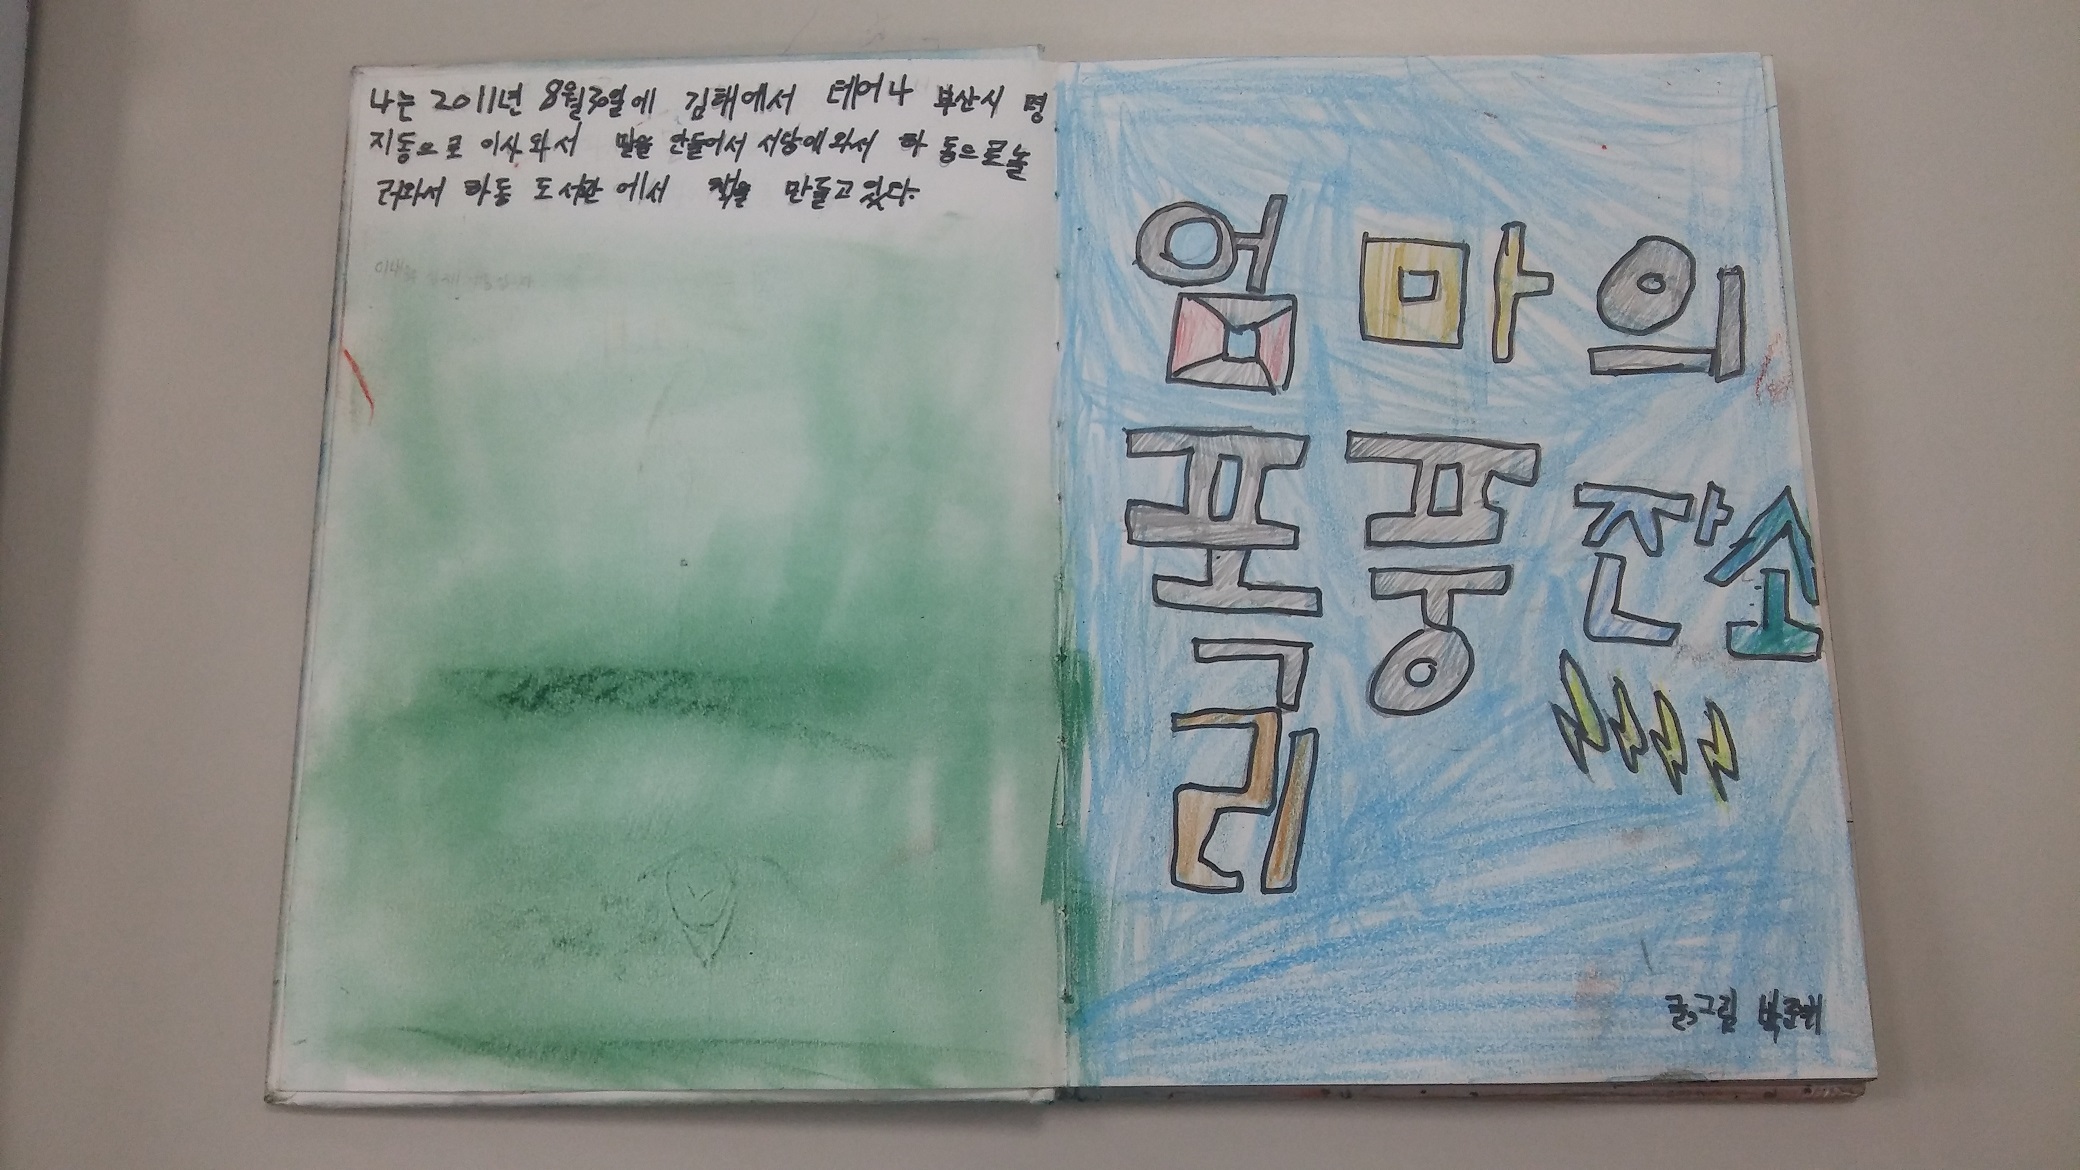 나는 2011년 8월30일에 김해에서 테어나 부산시 명
지동으로 이사와서 말을 안들어서 서당에와서 하동으로놀
러와서 하동 도서관에서 책을 만들고있다.
엄마의
폭풍잔소
리
글,그림 박준